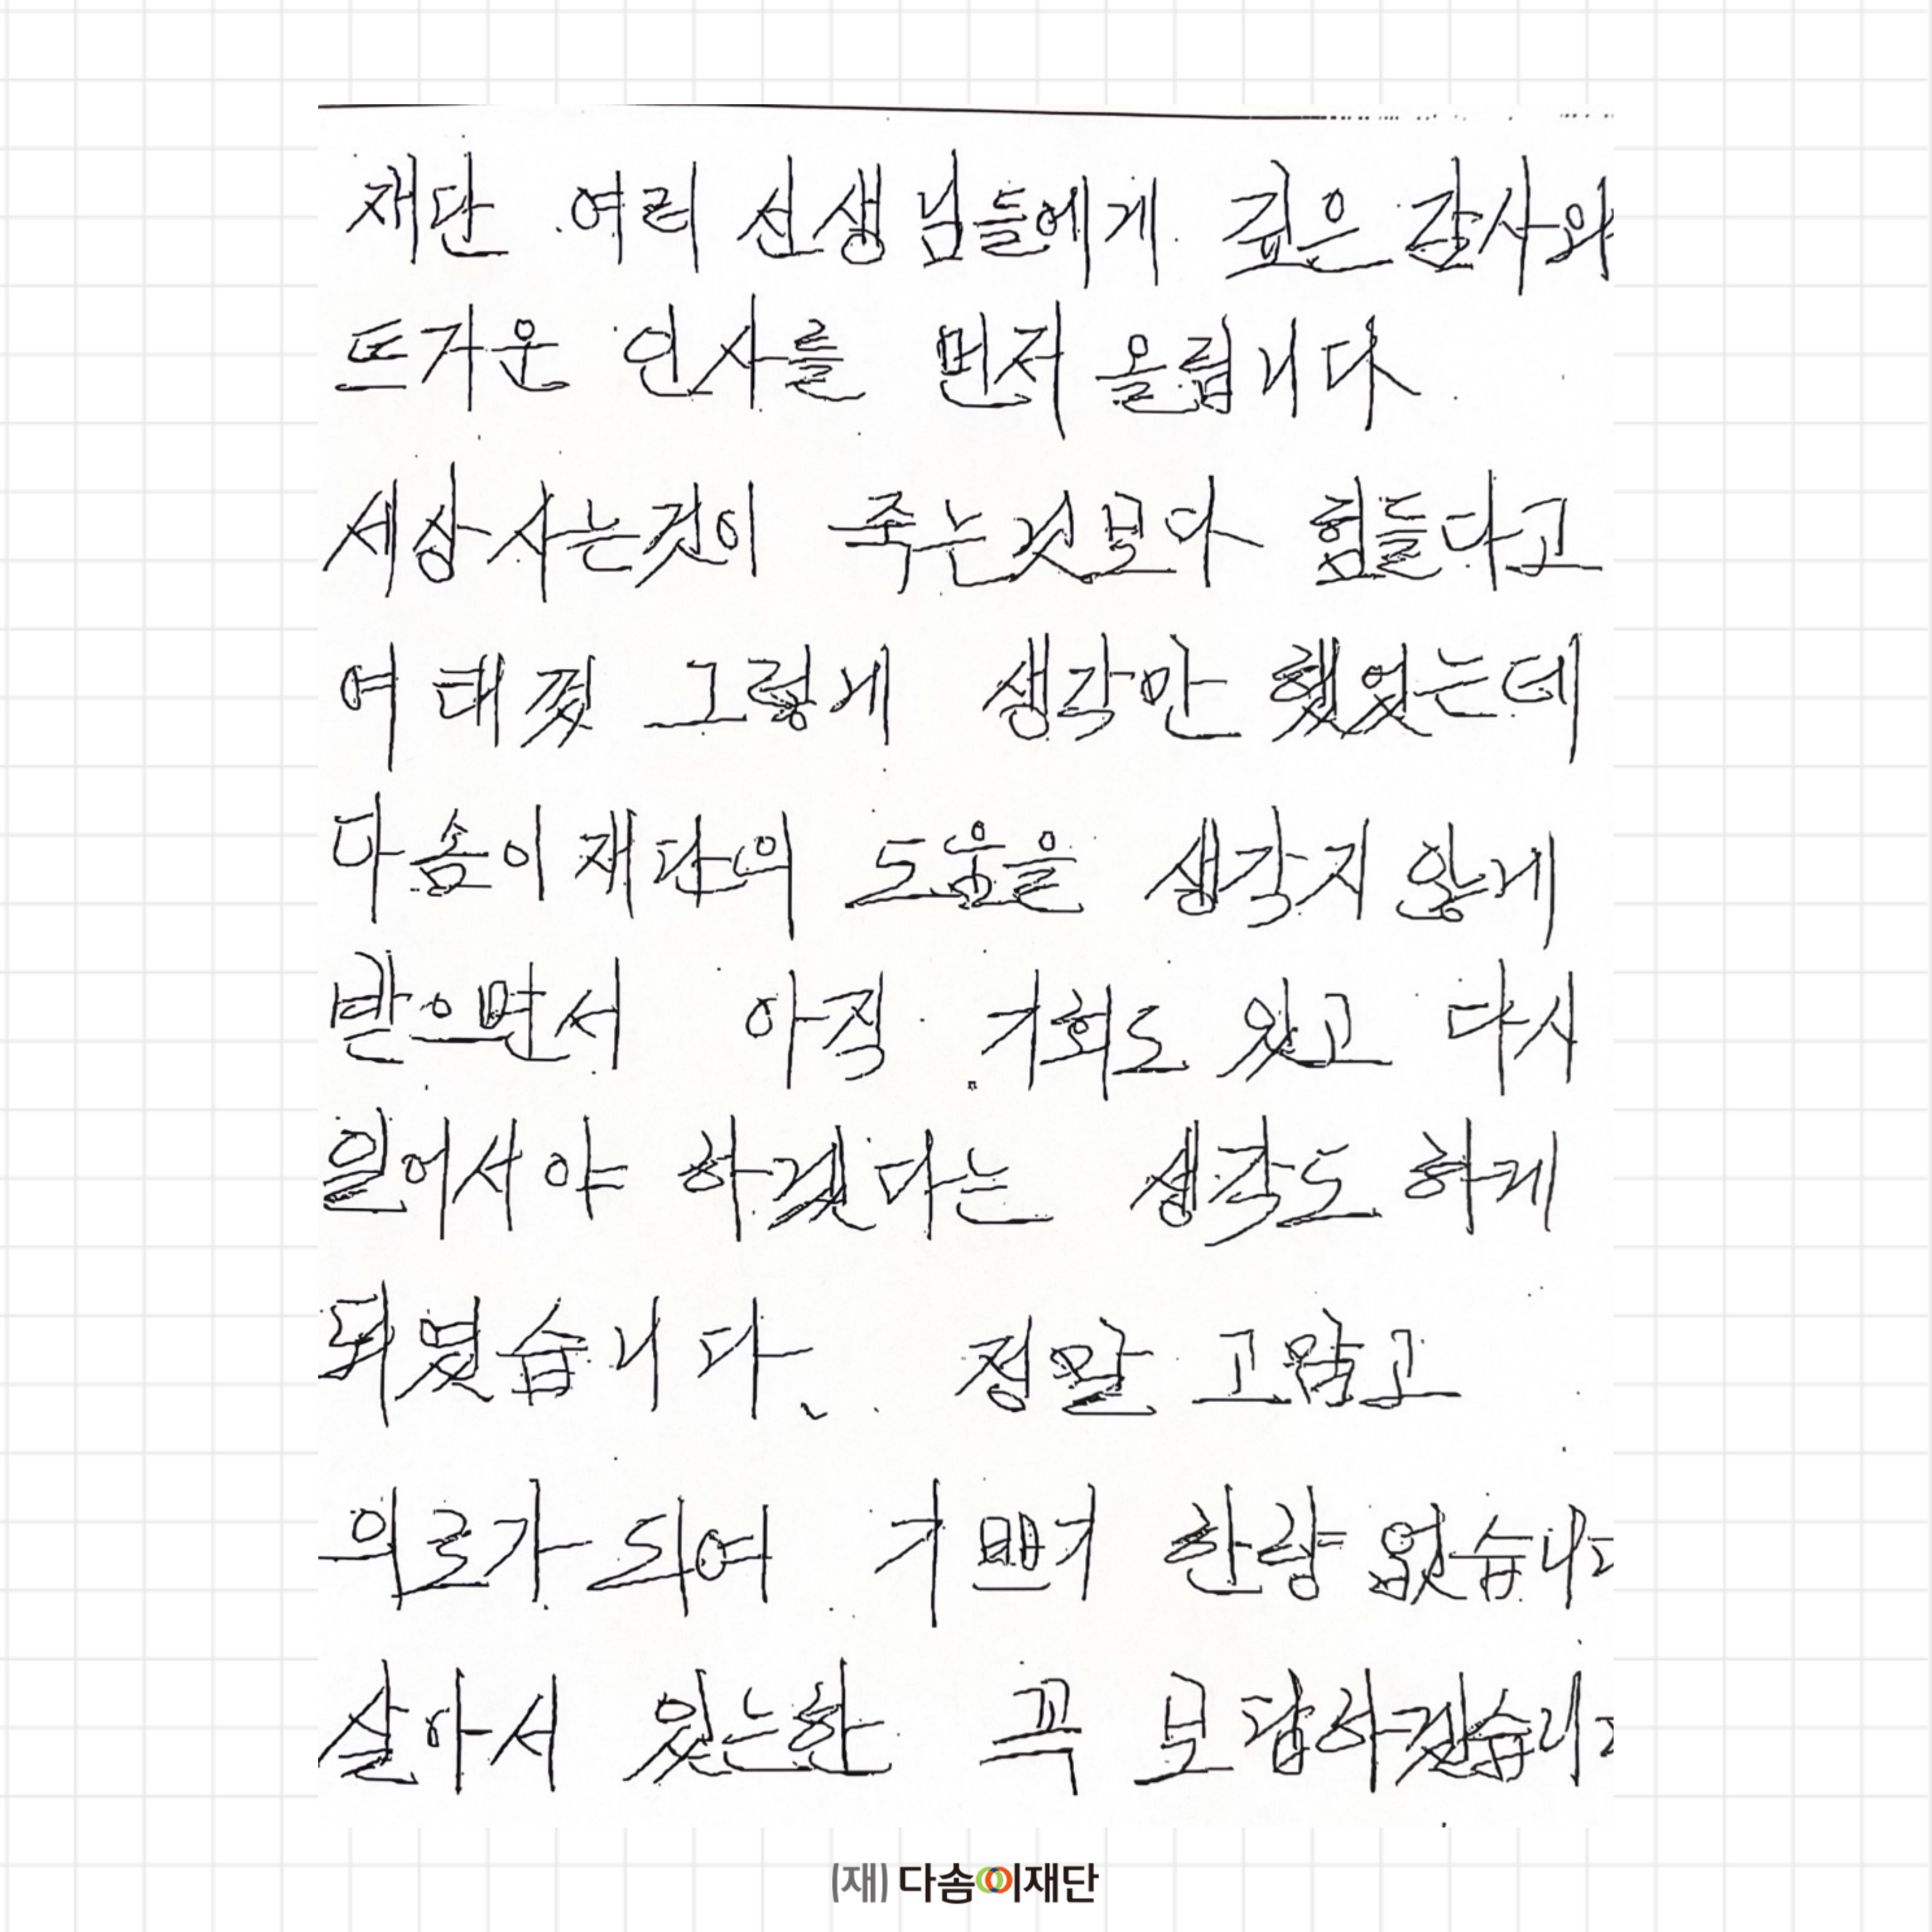 재단 여러 선생님들에게 깊은 감사와
뜨거운 인사를 먼저 올립니다
세상 사는것이 죽는것보다 힘들다고
여태껏 그렇게 생각만 했었는데
다솜이재단의 도움을 생각지 않게
받으면서 아직 기회도 있고 다시
일어서야 하겠다는 생각도 하게
되였습니다. 정말 고맙고
위로가 되여 기쁘기 한량 없습니다
살아서 있는한 꼭 보답하겠습니다
(재) 다솜이재단